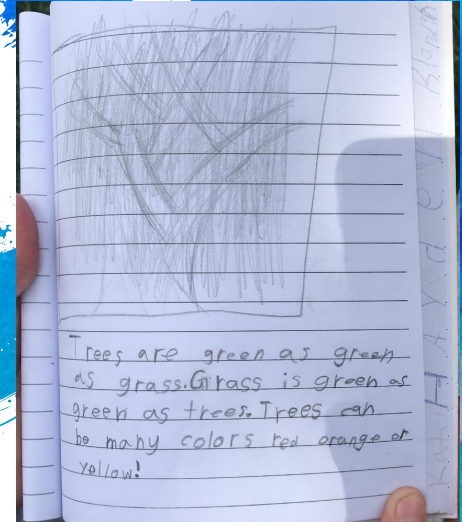 Trees are green as green
as grass. Grass is green as
green as trees. Trees can
be many colors red orange or
yellow!